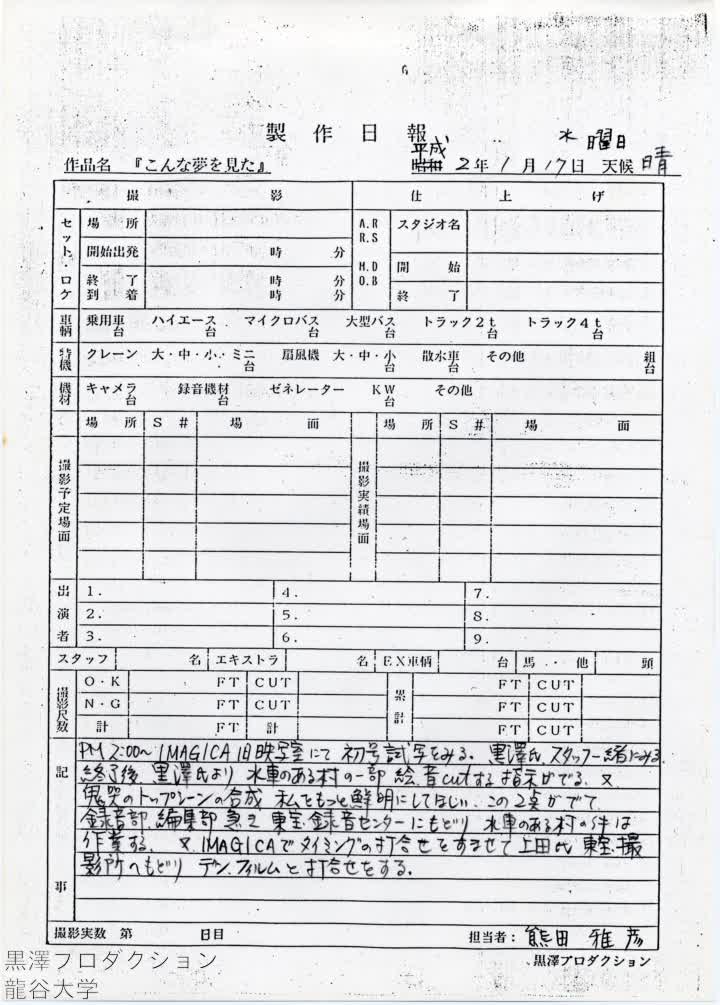 製作日報
水曜日
作品名 『こんな夢を見た』 平成 昭和 2年1月17日 天候 晴
撮影 仕上げ
セット・ロケ 場所 A.R R.S スタジオ名
開始出発 時 分 M.D O.B 開始
終了 時 分
到着 時 分 終了
車輌 乗用車 台 ハイエース 台 マイクロバス 台 大型バス 台 トラック2t 台 トラック4t 台
特機 クレーン 大・中・小・ミニ 台 扇風機 大・中・小 台 散水車 台 その他 組 台
機材 キャメラ 台 録音機材 台 ゼネレーター KW 台 その他
場所 S# 場面 場所 S# 場面
撮影予定場面 撮影実績場面
出演者 1. 4. 7.
2. 5. 8.
3. 6. 9.
スタッフ 名 エキストラ 名 EX車輌 台 馬・他 頭
撮影尺数 O・K FT CUT 累計 FT CUT
N・G FT CUT FT CUT
計 FT 計 FT CUT
記事
PM 2:00〜 IMAGICA 旧映写室にて 初号試写をみる。黒澤氏、スタッフ一緒にみる。
終了後 黒澤氏より 水車のある村の一部 絵、音cutする指示がでる。又、
鬼哭のトップシーンの合成 もっと鮮明にしてほしい、この2点がでて、
録音部、編集部 急 東宝録音センターにもどり 水車のある村の は
作業する。又、IMAGICAでタイミングの打合せをすませて上田氏 東宝撮
影所へもどり デン、フィルムと打合せをする。
撮影実数 第 日目 担当者: 熊田雅彦
黒澤プロダクション
黒澤プロダクション
龍谷大学